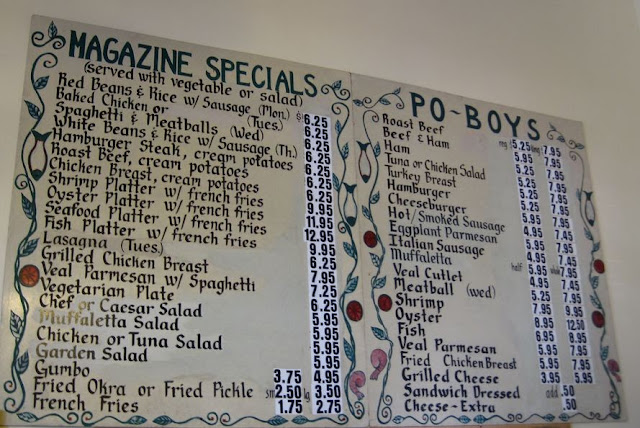 MAGAZINE SPECIALS
(Served with vegetable or salad)
Red Beans & Rice w/ Sausage (Mon.) $6.25
Baked Chicken or (Tues.) 6.25
Spaghetti & Meatballs (Wed) 6.25
White Beans & Rice w/ Sausage (Th.) 6.25
Hamburger Steak, cream potatoes 6.25
Roast Beef, cream potatoes 6.25
Chicken Breast, cream potatoes 6.25
Shrimp Platter w/ french fries 9.95
Oyster Platter w/ french fries 11.95
Seafood Platter w/ french fries 12.95
Fish Platter w/ french fries 9.95
Lasagna (Tues.) 6.25
Grilled Chicken Breast 7.95
Veal Parmesan w/ Spaghetti 7.25
Vegetarian Plate 6.25
Chef or Caesar Salad 5.95
Muffaletta Salad 5.95
Chicken or Tuna Salad 5.95
Garden Salad 5.95
Gumbo 3.75 4.95
Fried Okra or Fried Pickle sm 2.50 lg 3.50
French Fries 1.75 2.75
PO-BOYS
Roast Beef reg 5.25 king 7.95
Beef & Ham 5.95 7.95
Ham 5.25 7.50
Tuna or Chicken Salad 5.25 7.95
Turkey Breast 5.25 7.95
Hamburger 5.25 7.45
Cheeseburger 5.25 7.95
Hot/Smoked Sausage 5.25 7.95
Eggplant Parmesan 4.95 7.45
Italian Sausage 5.95 7.95
Muffaletta half 5.95 whole 7.95
Veal Cutlet 4.95 7.45
Meatball (wed) 5.25 7.95
Shrimp 7.95 9.95
Oyster 8.95 12.50
Fish 6.95 8.95
Veal Parmesan 5.95 7.95
Fried Chicken Breast 5.95 7.95
Grilled Cheese 3.95 5.95
Sandwich Dressed add .50
Cheese-Extra .50